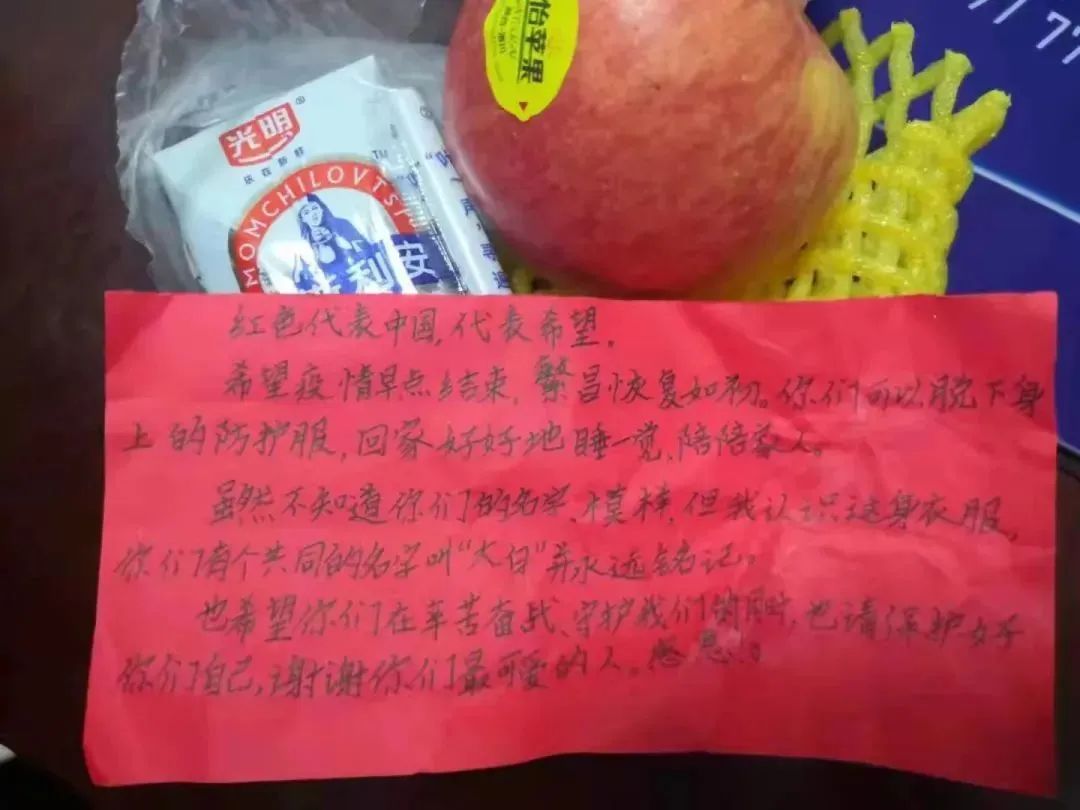 77 77
怡苹果
光明
乐在新鲜
TM
MOMCHILOVTSI
莫斯利安
红色代表中国,代表希望。
希望疫情早点结束,繁昌恢复如初。你们可以脱下身
上的防护服,回家好好地睡一觉,陪陪家人。
虽然不知道你们的名字、模样,但我认识这身衣服,
你们有个共同的名字叫“大白”并永远铭记。
也希望你们在辛苦奋战、守护我们的同时,也请保护好
你们自己,谢谢你们最可爱的人。感恩。